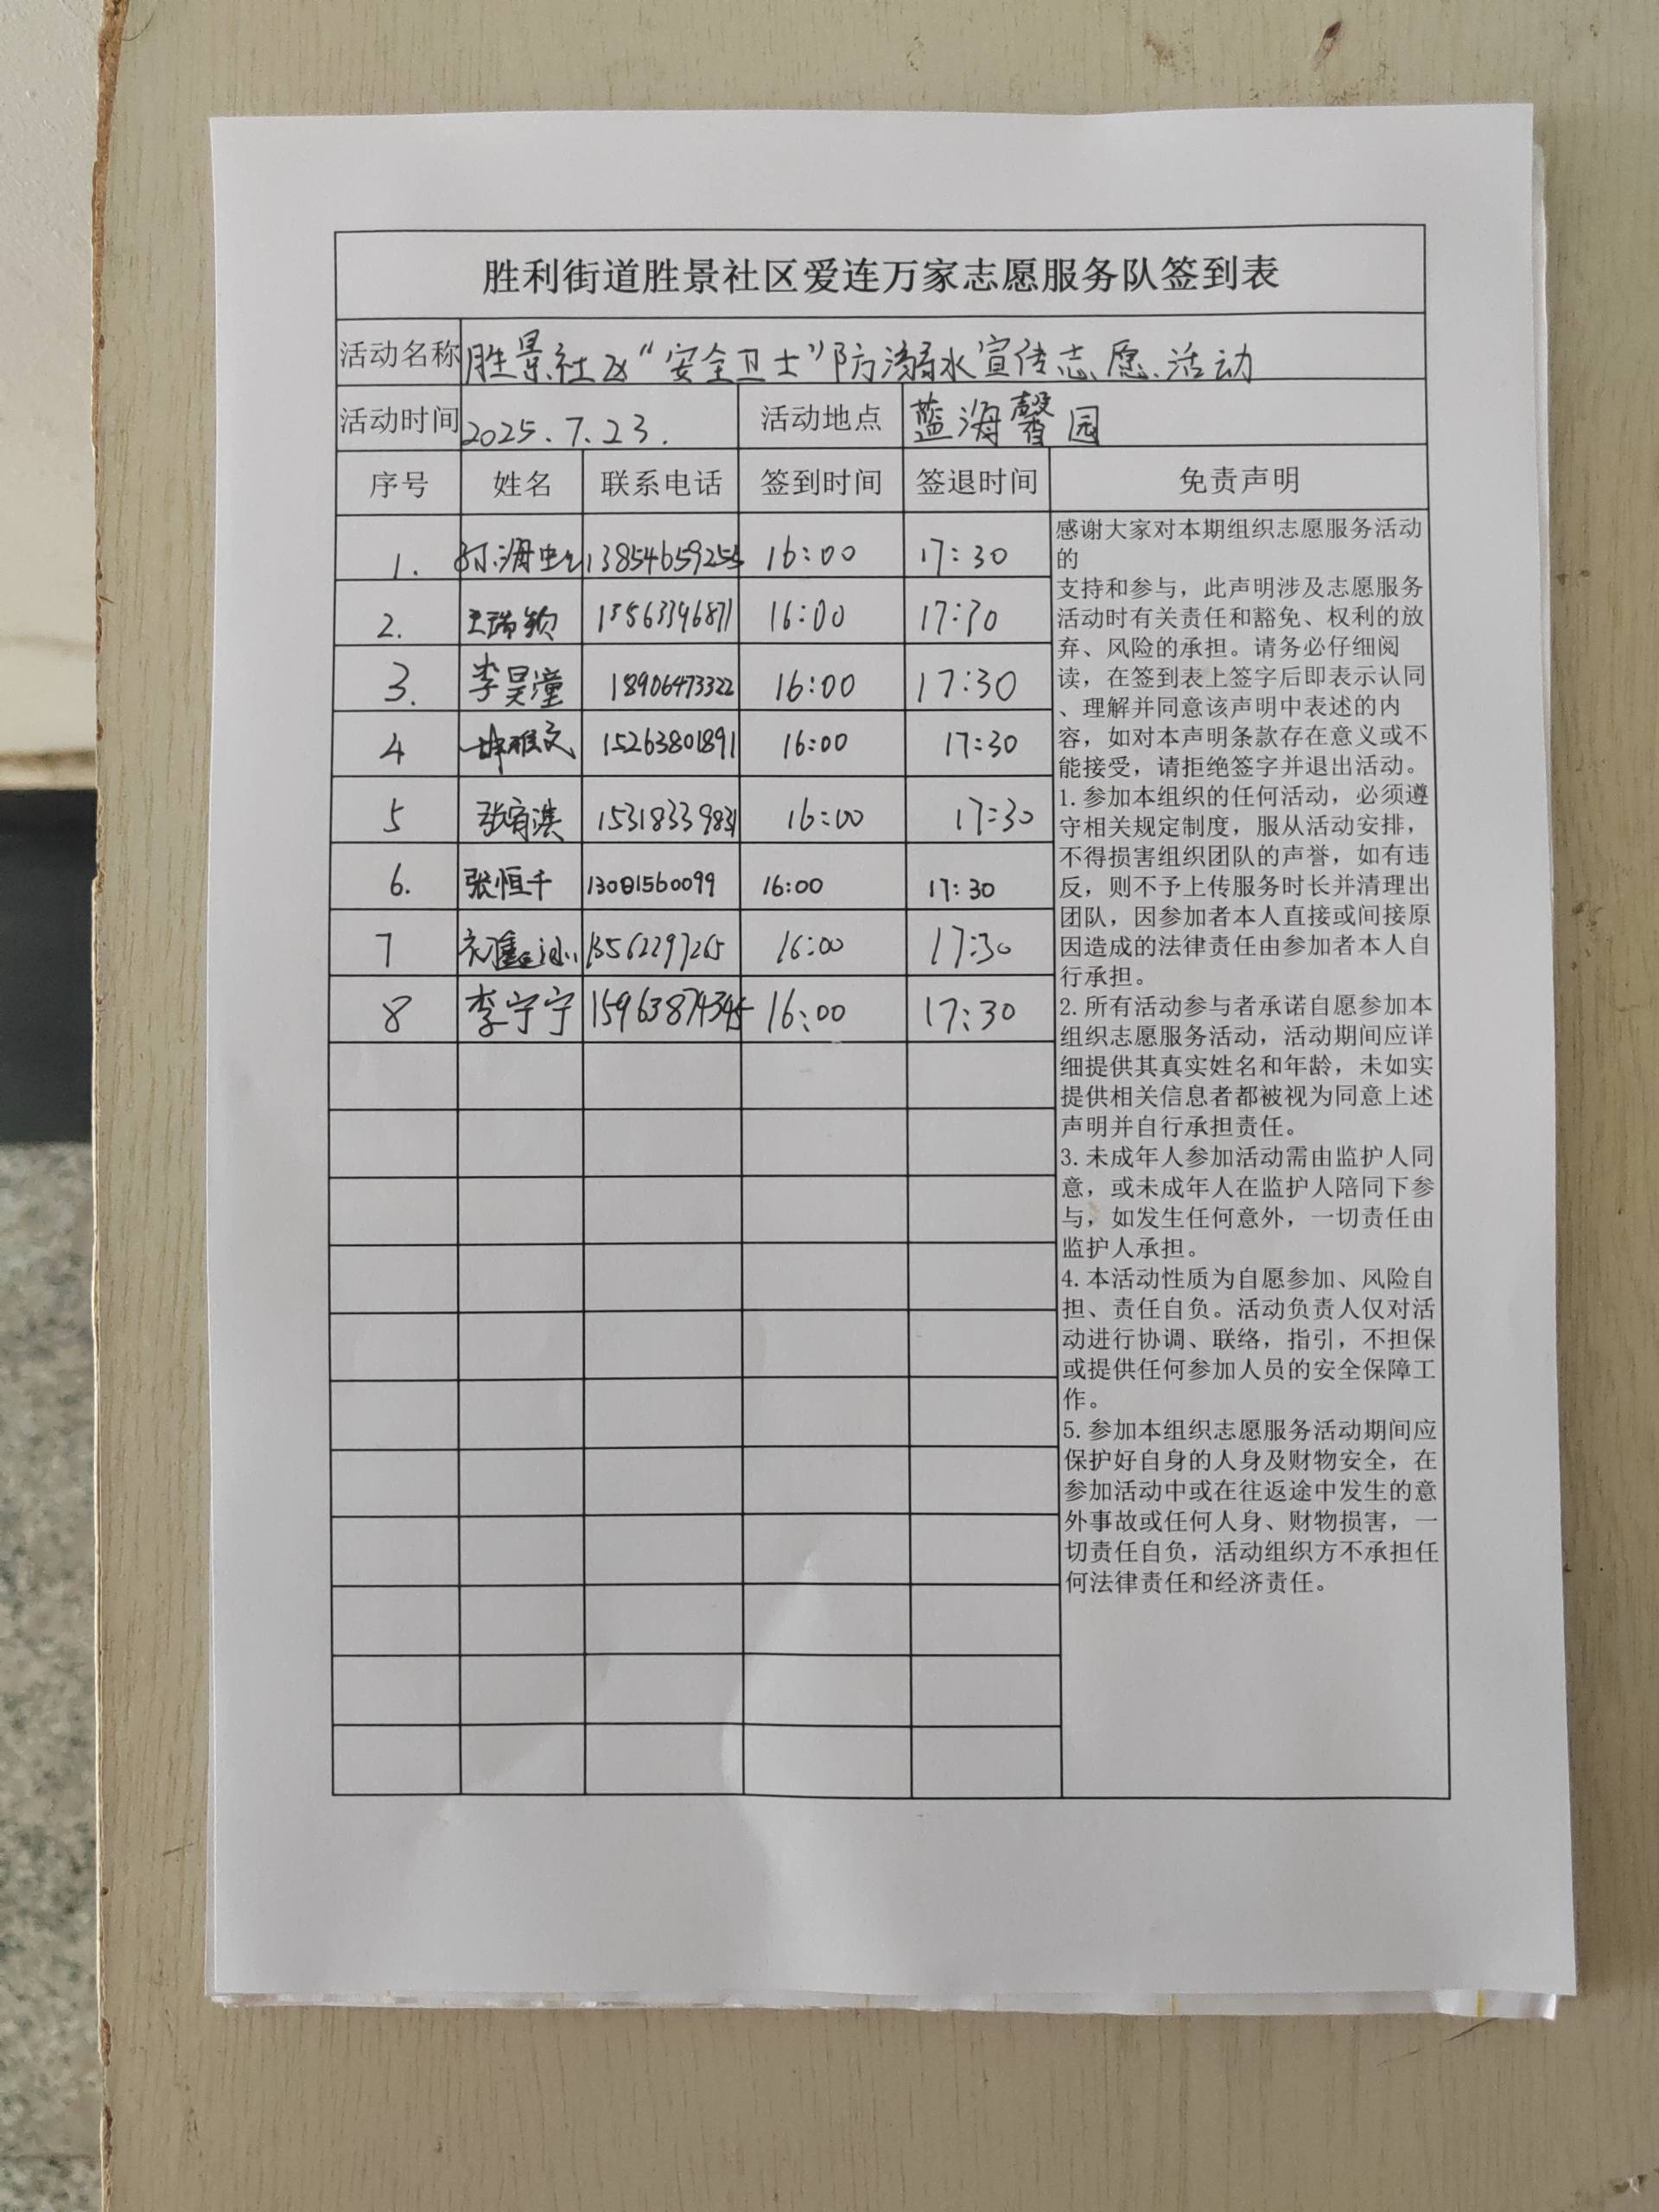 胜利街道胜景社区爱连万家志愿服务队签到表
活动名称 胜景社区“安全卫士”防溺水宣传志愿活动
活动时间 2025.7.23. 活动地点 蓝海馨园
序号 姓名 联系电话 签到时间 签退时间 免责声明
1. 16:00 17:30
2. 王瑞颖 13563396871 16:00 17:30
3. 李昊潼 18906473322 16:00 17:30
4 15263801891 16:00 17:30
5 15318339831 16:00 17:30
6. 张恒千 13001560099 16:00 17:30
7 13562297265 16:00 17:30
8 李宁宁 15963874345 16:00 17:30
感谢大家对本期组织志愿服务活动
的
支持和参与，此声明涉及志愿服务
活动时有关责任和豁免、权利的放
弃、风险的承担。请务必仔细阅
读，在签到表上签字后即表示认同
、理解并同意该声明中表述的内
容，如对本声明条款存在意义或不
能接受，请拒绝签字并退出活动。
1.参加本组织的任何活动，必须遵
守相关规定制度，服从活动安排，
不得损害组织团队的声誉，如有违
反，则不予上传服务时长并清理出
团队，因参加者本人直接或间接原
因造成的法律责任由参加者本人自
行承担。
2.所有活动参与者承诺自愿参加本
组织志愿服务活动，活动期间应详
细提供其真实姓名和年龄，未如实
提供相关信息者都被视为同意上述
声明并自行承担责任。
3.未成年人参加活动需由监护人同
意，或未成年人在监护人陪同下参
与，如发生任何意外，一切责任由
监护人承担。
4.本活动性质为自愿参加、风险自
担、责任自负。活动负责人仅对活
动进行协调、联络，指引，不担保
或提供任何参加人员的安全保障工
作。
5.参加本组织志愿服务活动期间应
保护好自身的人身及财物安全，在
参加活动中或在往返途中发生的意
外事故或任何人身、财物损害，一
切责任自负，活动组织方不承担任
何法律责任和经济责任。